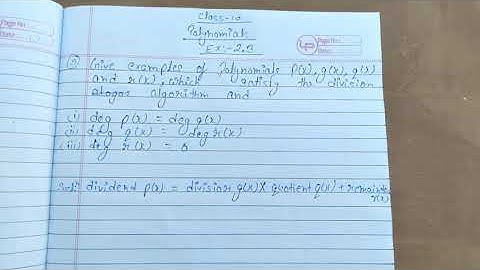 Class-10
Polynomials
Ex:-2.3
Page No.
Page No.
Date
5) Give examples of Polynomials P(x), g(x), q(x)
and r(x), which satisfy the division
algorithm and
(i) deg p(x) = deg q(x)
(ii) deg q(x) = deg r(x)
(iii) deg r(x) = 0
Sol: dividend p(x) = division g(x) X quotient q(x) + remainder
r(x)